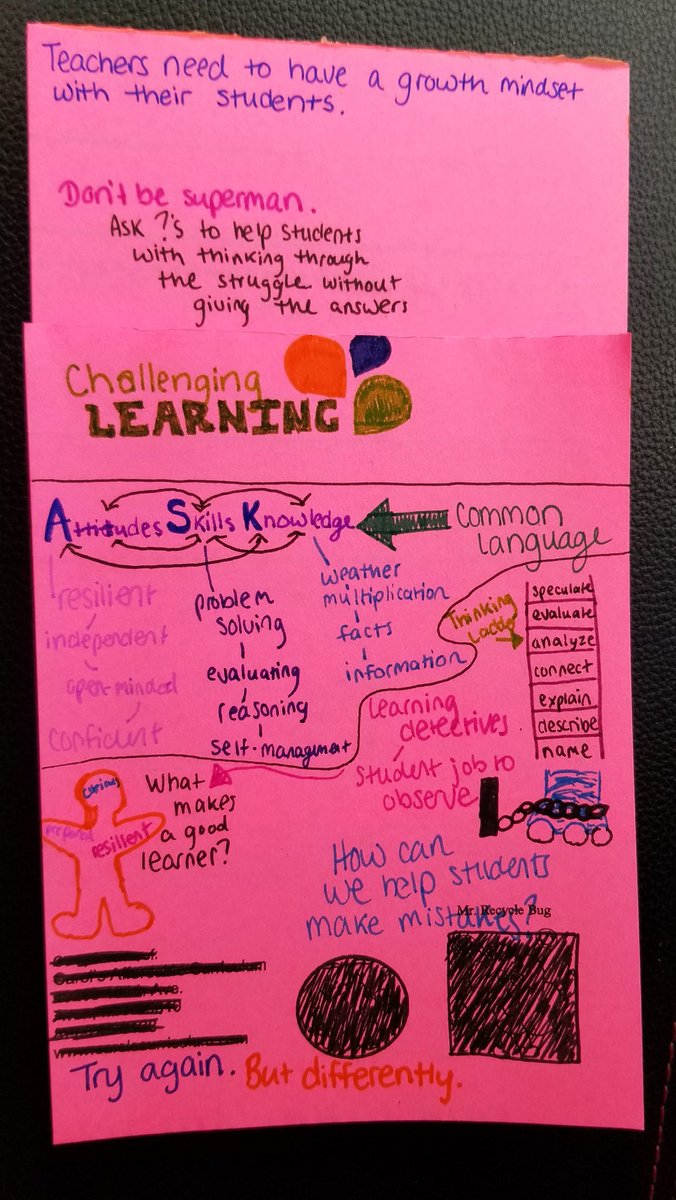 Teachers need to have a growth mindset
with their students.
Don't be superman.
Ask ?'s to help students
with thinking through
the struggle without
giving the answers
Challenging
LEARNING
Attitudes Skills Knowledge
Common
language
resilient
independent
open minded
confident
problem
solving
evaluating
reasoning
self-management
weather
multiplication
facts
information
Thinking
Ladder
speculate
evaluate
analyze
connect
explain
describe
name
Learning
detectives
student job to
observe
curious
prepared
resilient
What
makes
a good
learner?
How can
we help students
make mistakes?
Mr. Recycle Bug
Try again. But differently.